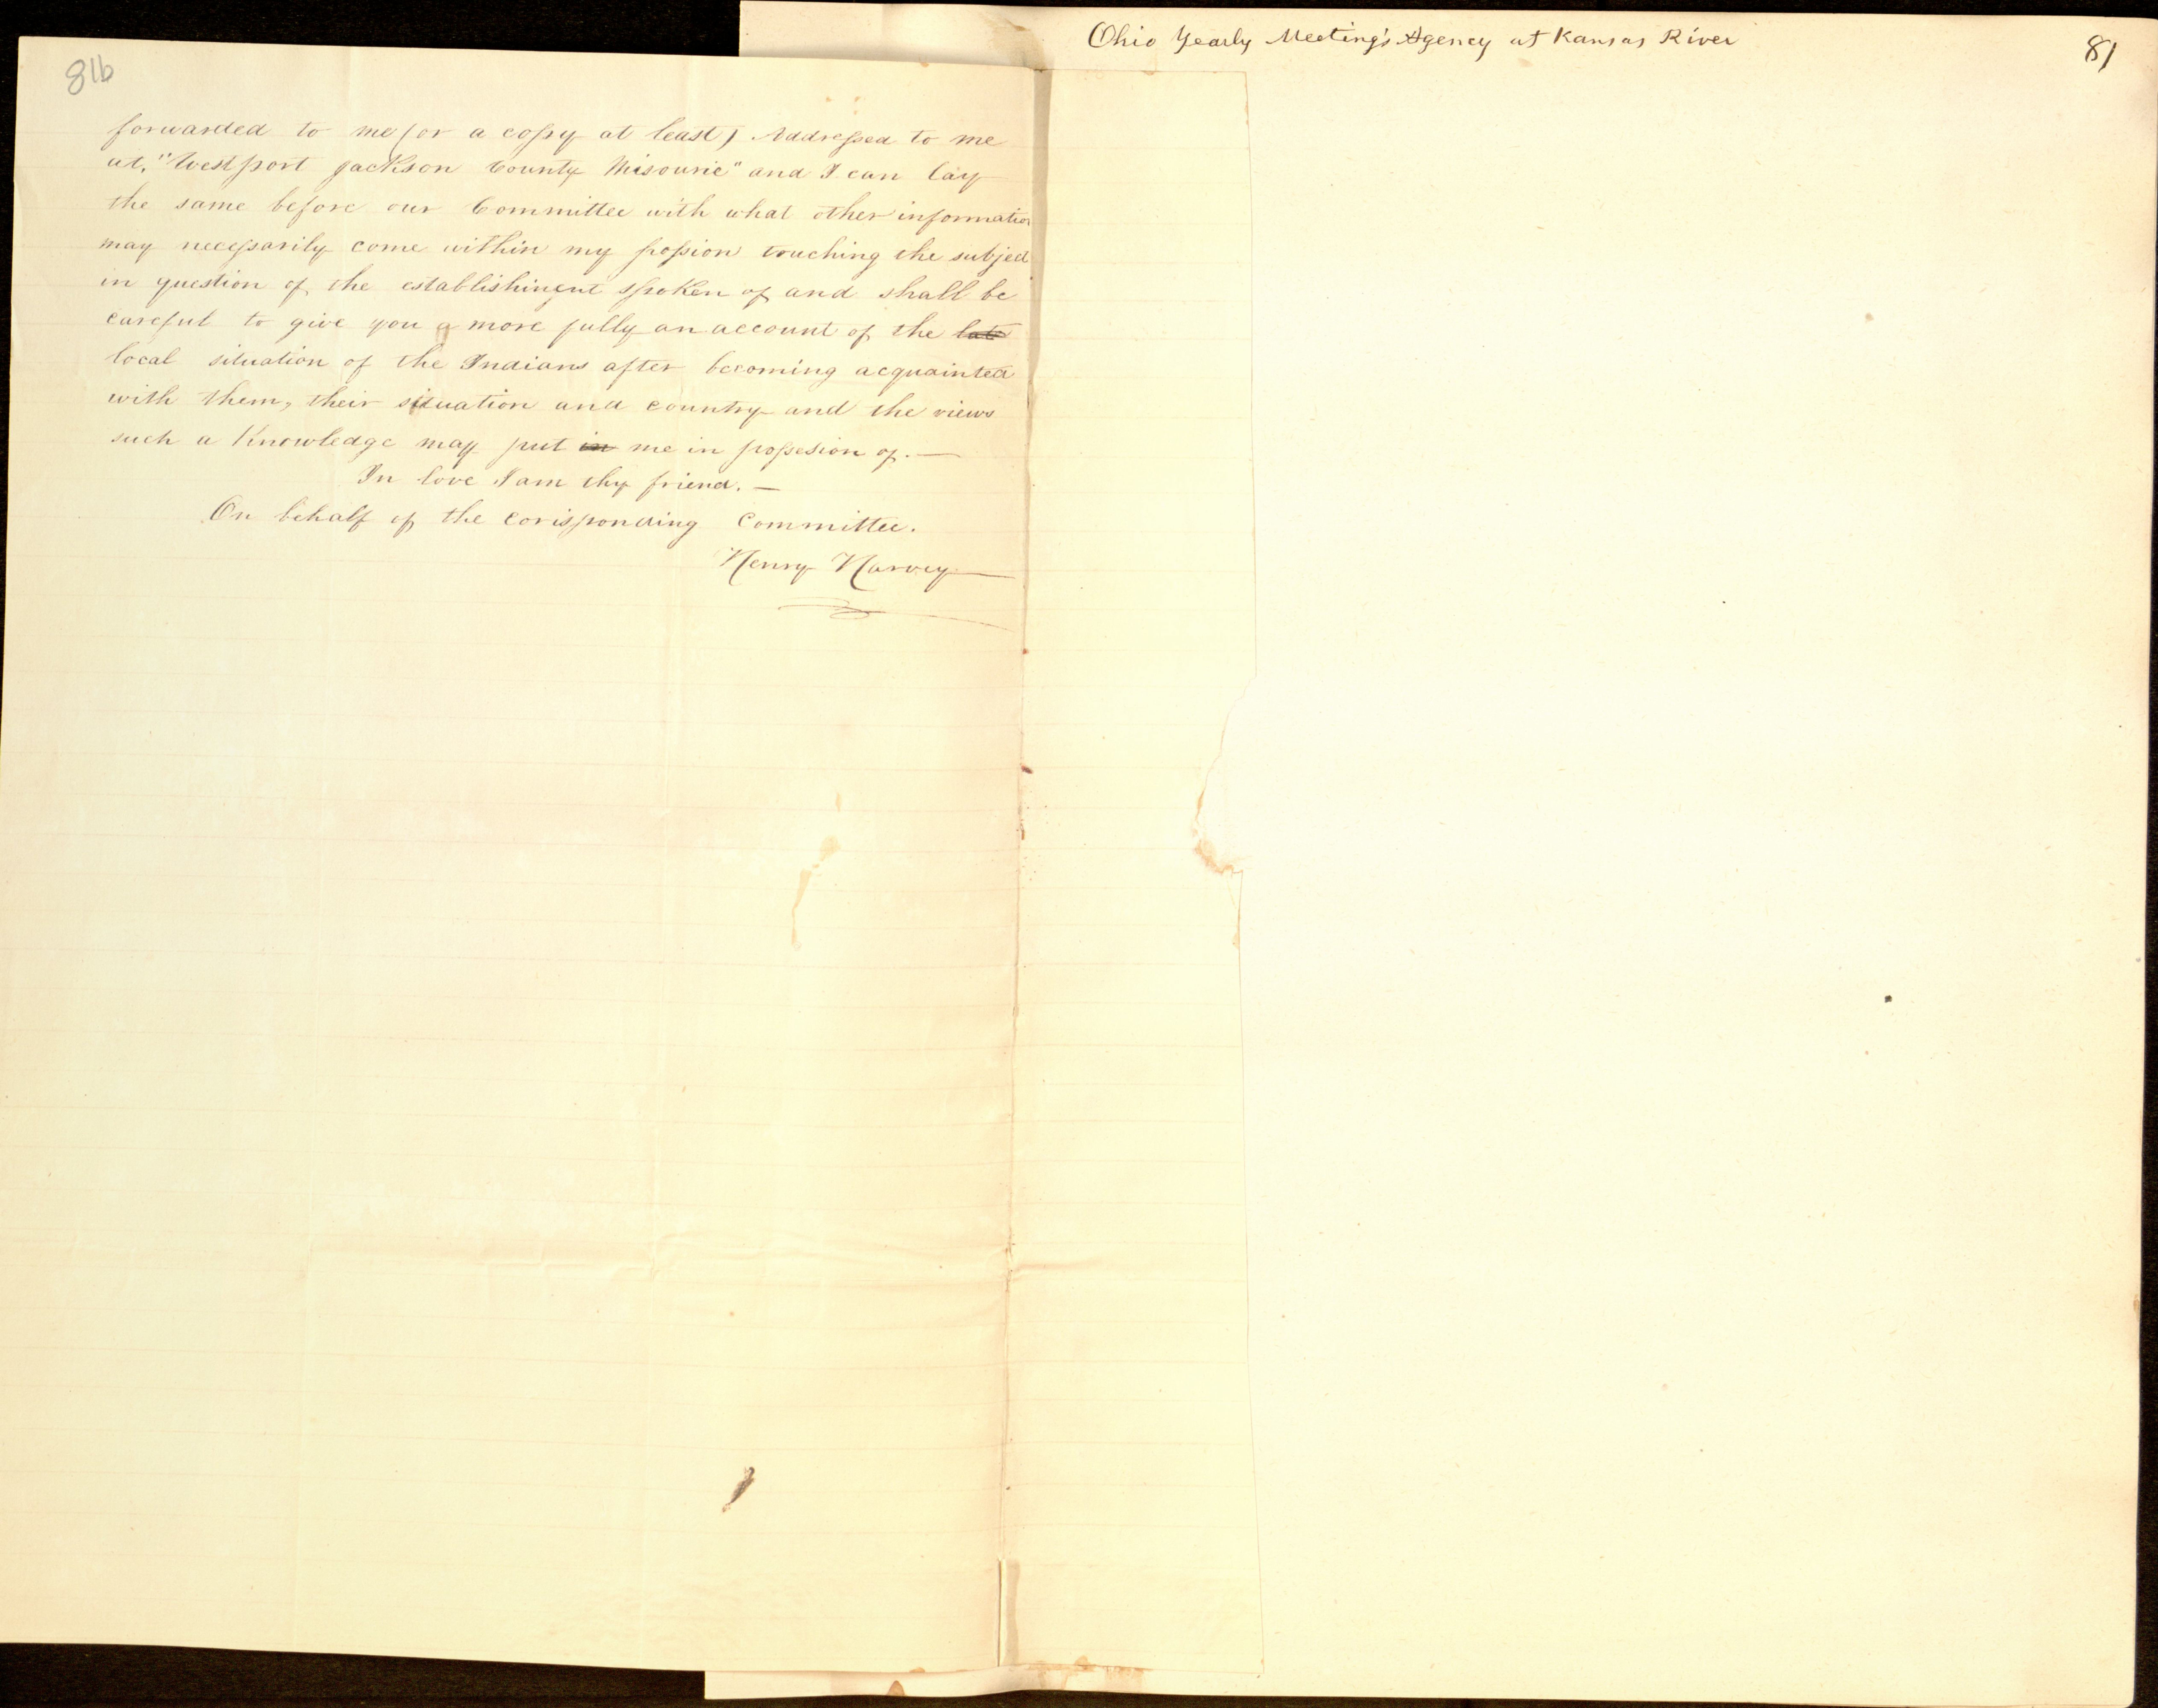 Ohio Yearly Meeting's Agency at Kansas River
81
81b
forwarded to me (or a copy at least) Addressed to me
at, "Westport Jackson County Misourie" and I can lay
the same before our Committee with what other information
may necessarily come within my possion touching the subject
in question of the establishment spoken of and shall be
careful to give you a more fully an account of the late
local situation of the Indians after becoming acquainted
with them, their situation and country and the views
such a Knowledge may put in me in possesion of. —
In love I am thy friend. —
On behalf of the corisponding Committee.
Henry Harvey